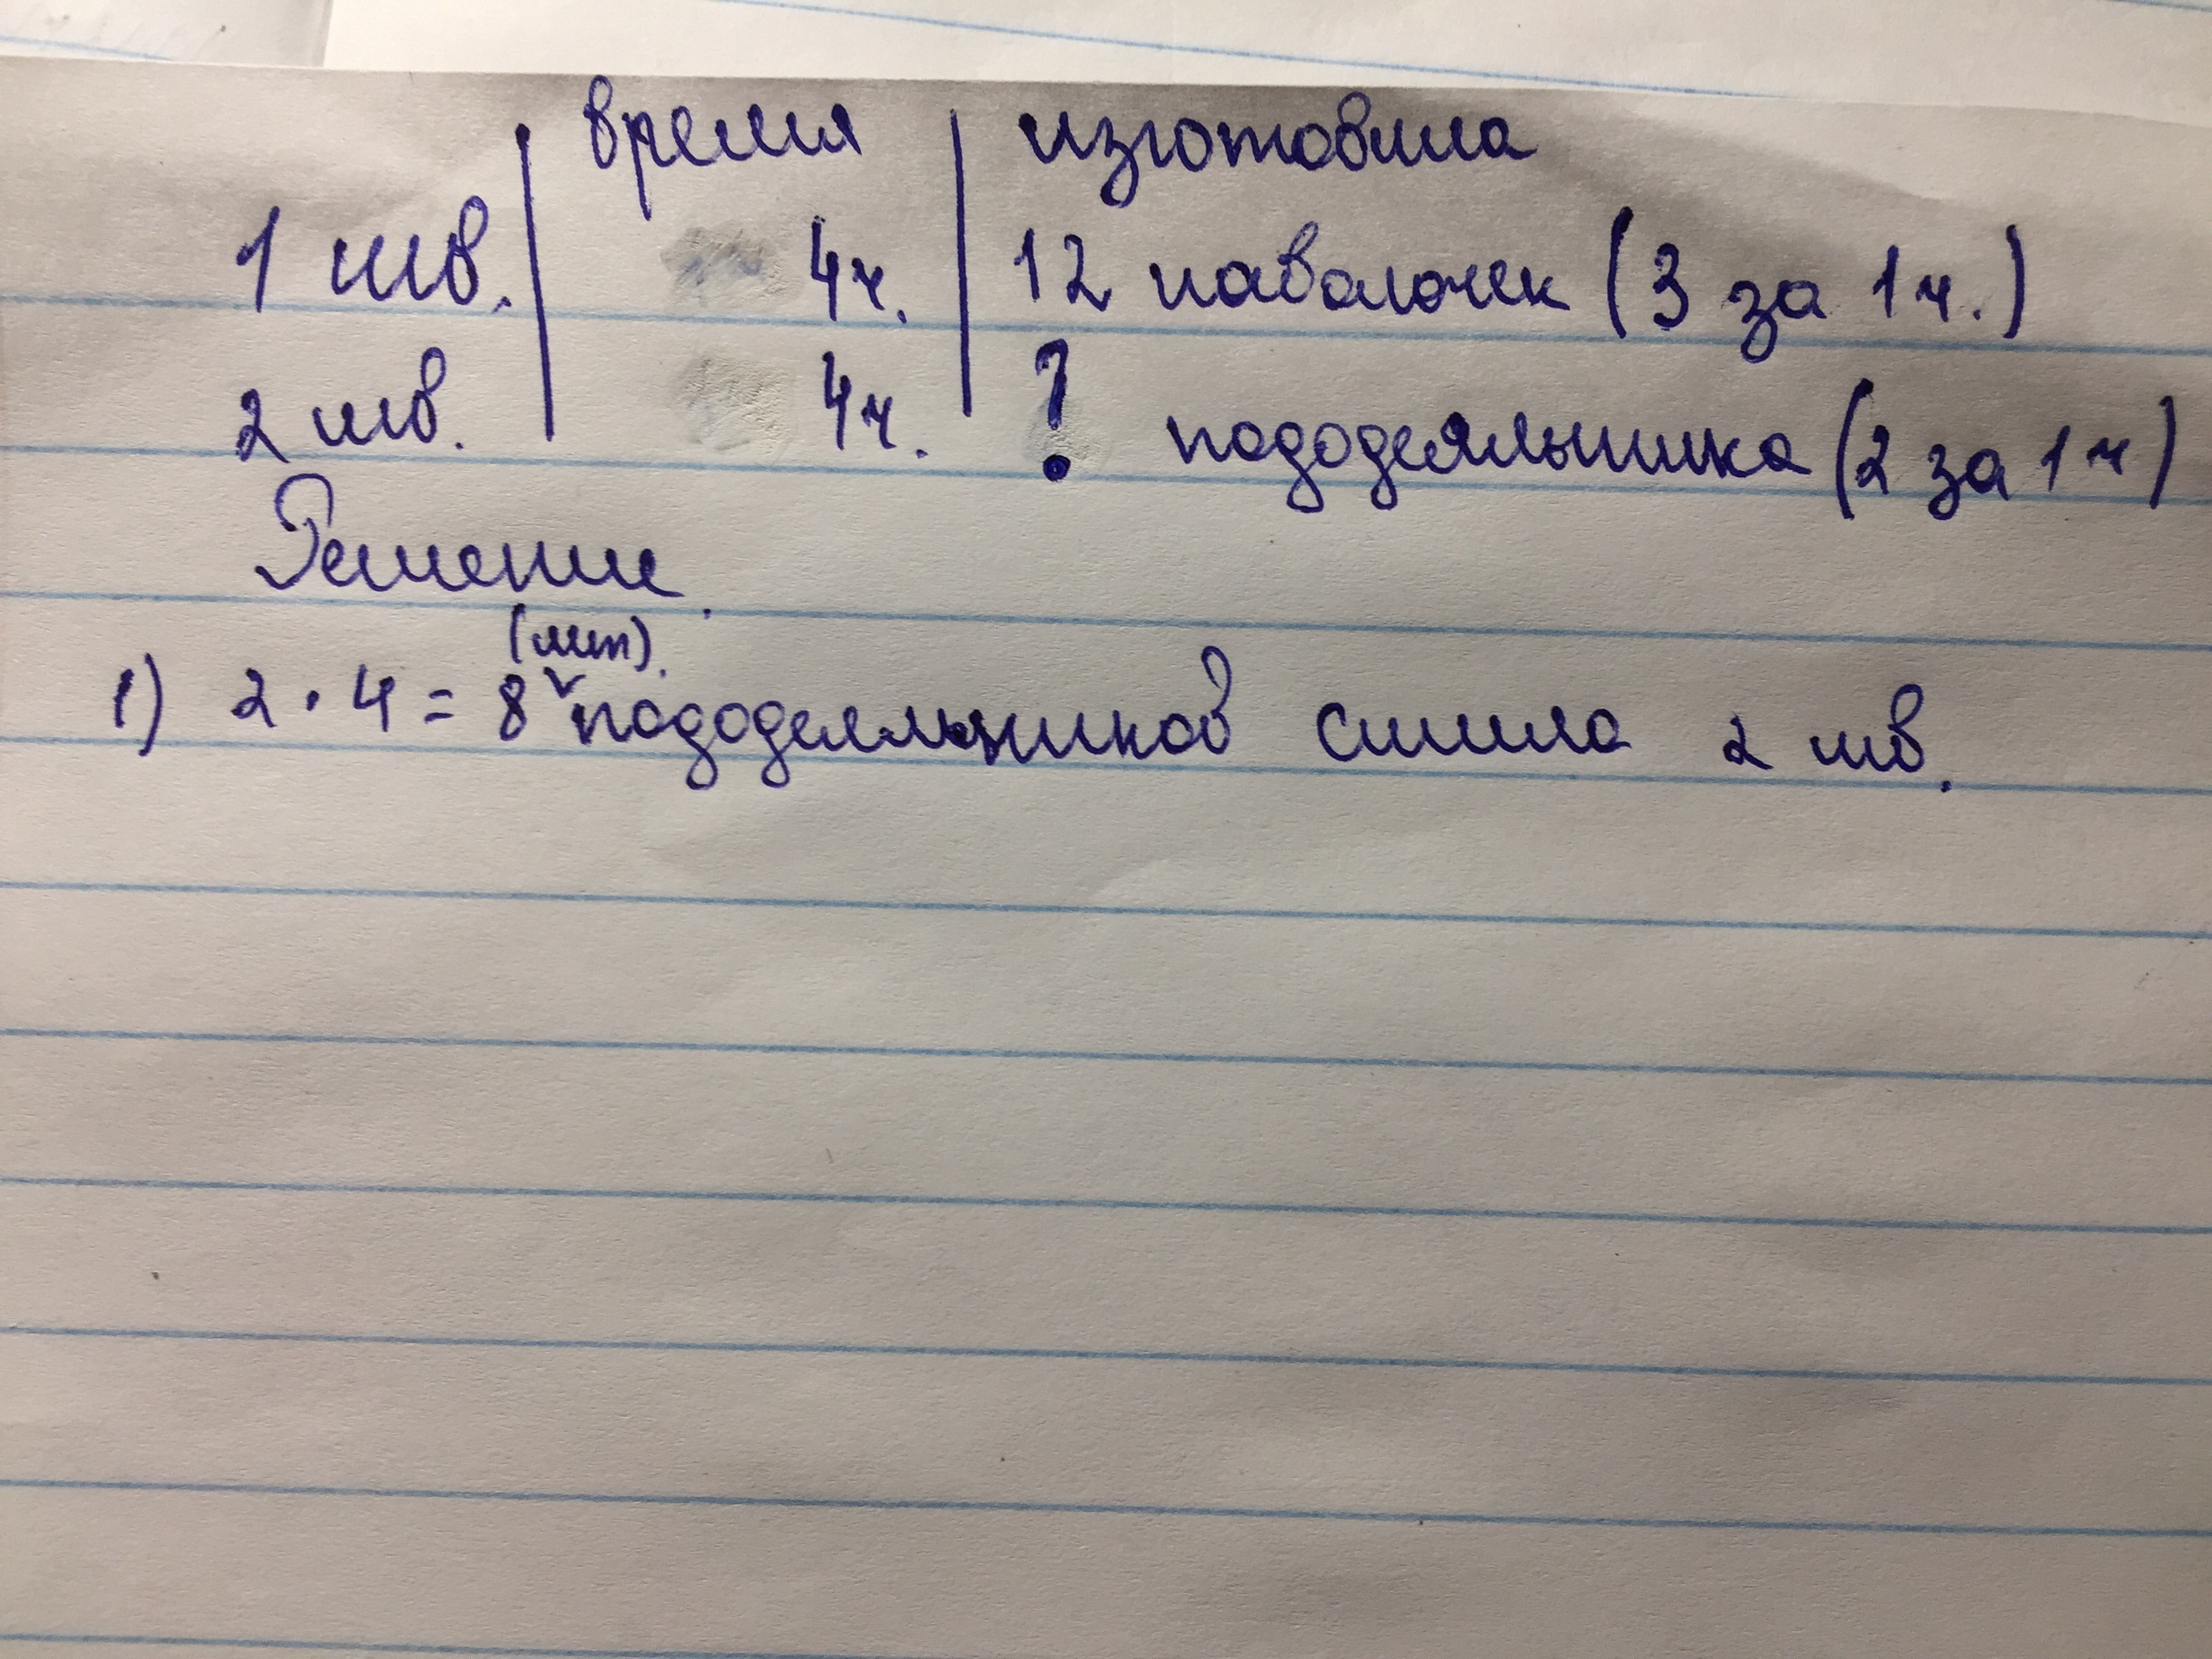 время изготовила
1 шв. 4ч. 12 наволочек (3 за 1ч.)
2 шв. 4ч. ? пододеяльника (2 за 1ч)
Решение.
(шт).
1) 2 · 4 = 8 пододеяльников сшила 2 шв.